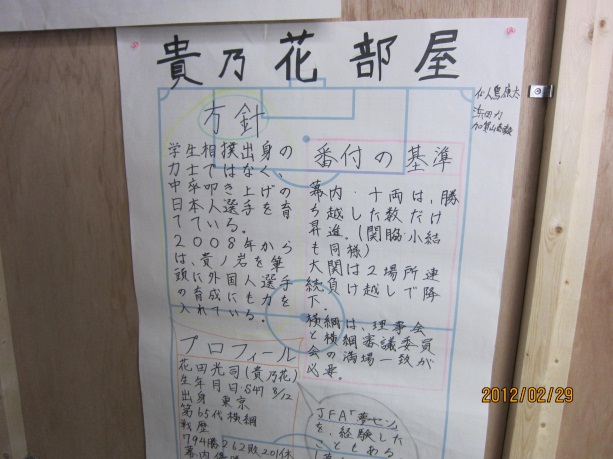 貴乃花部屋
方針
学生相撲出身の
力士ではなく、
中卒叩き上げの
日本人選手を育
てている。
2008年から
は、貴ノ岩を筆
頭に外国人選手
の育成にも力を
入れている。
番付の基準
幕内・十両は、勝
ち越した数だけ
昇進。(関脇小結
も同様)
大関は2場所連
続負け越しで降
下。
横綱は、理事会
と横綱審議委員
会の満場一致が
必要。
プロフィール
花田光司(貴乃花)
生年月日:S47 8/12
出身 東京
第65代横綱
戦歴
794勝262敗201休
JFA「夢セン」
を、経験した
こともある
2012/02/29